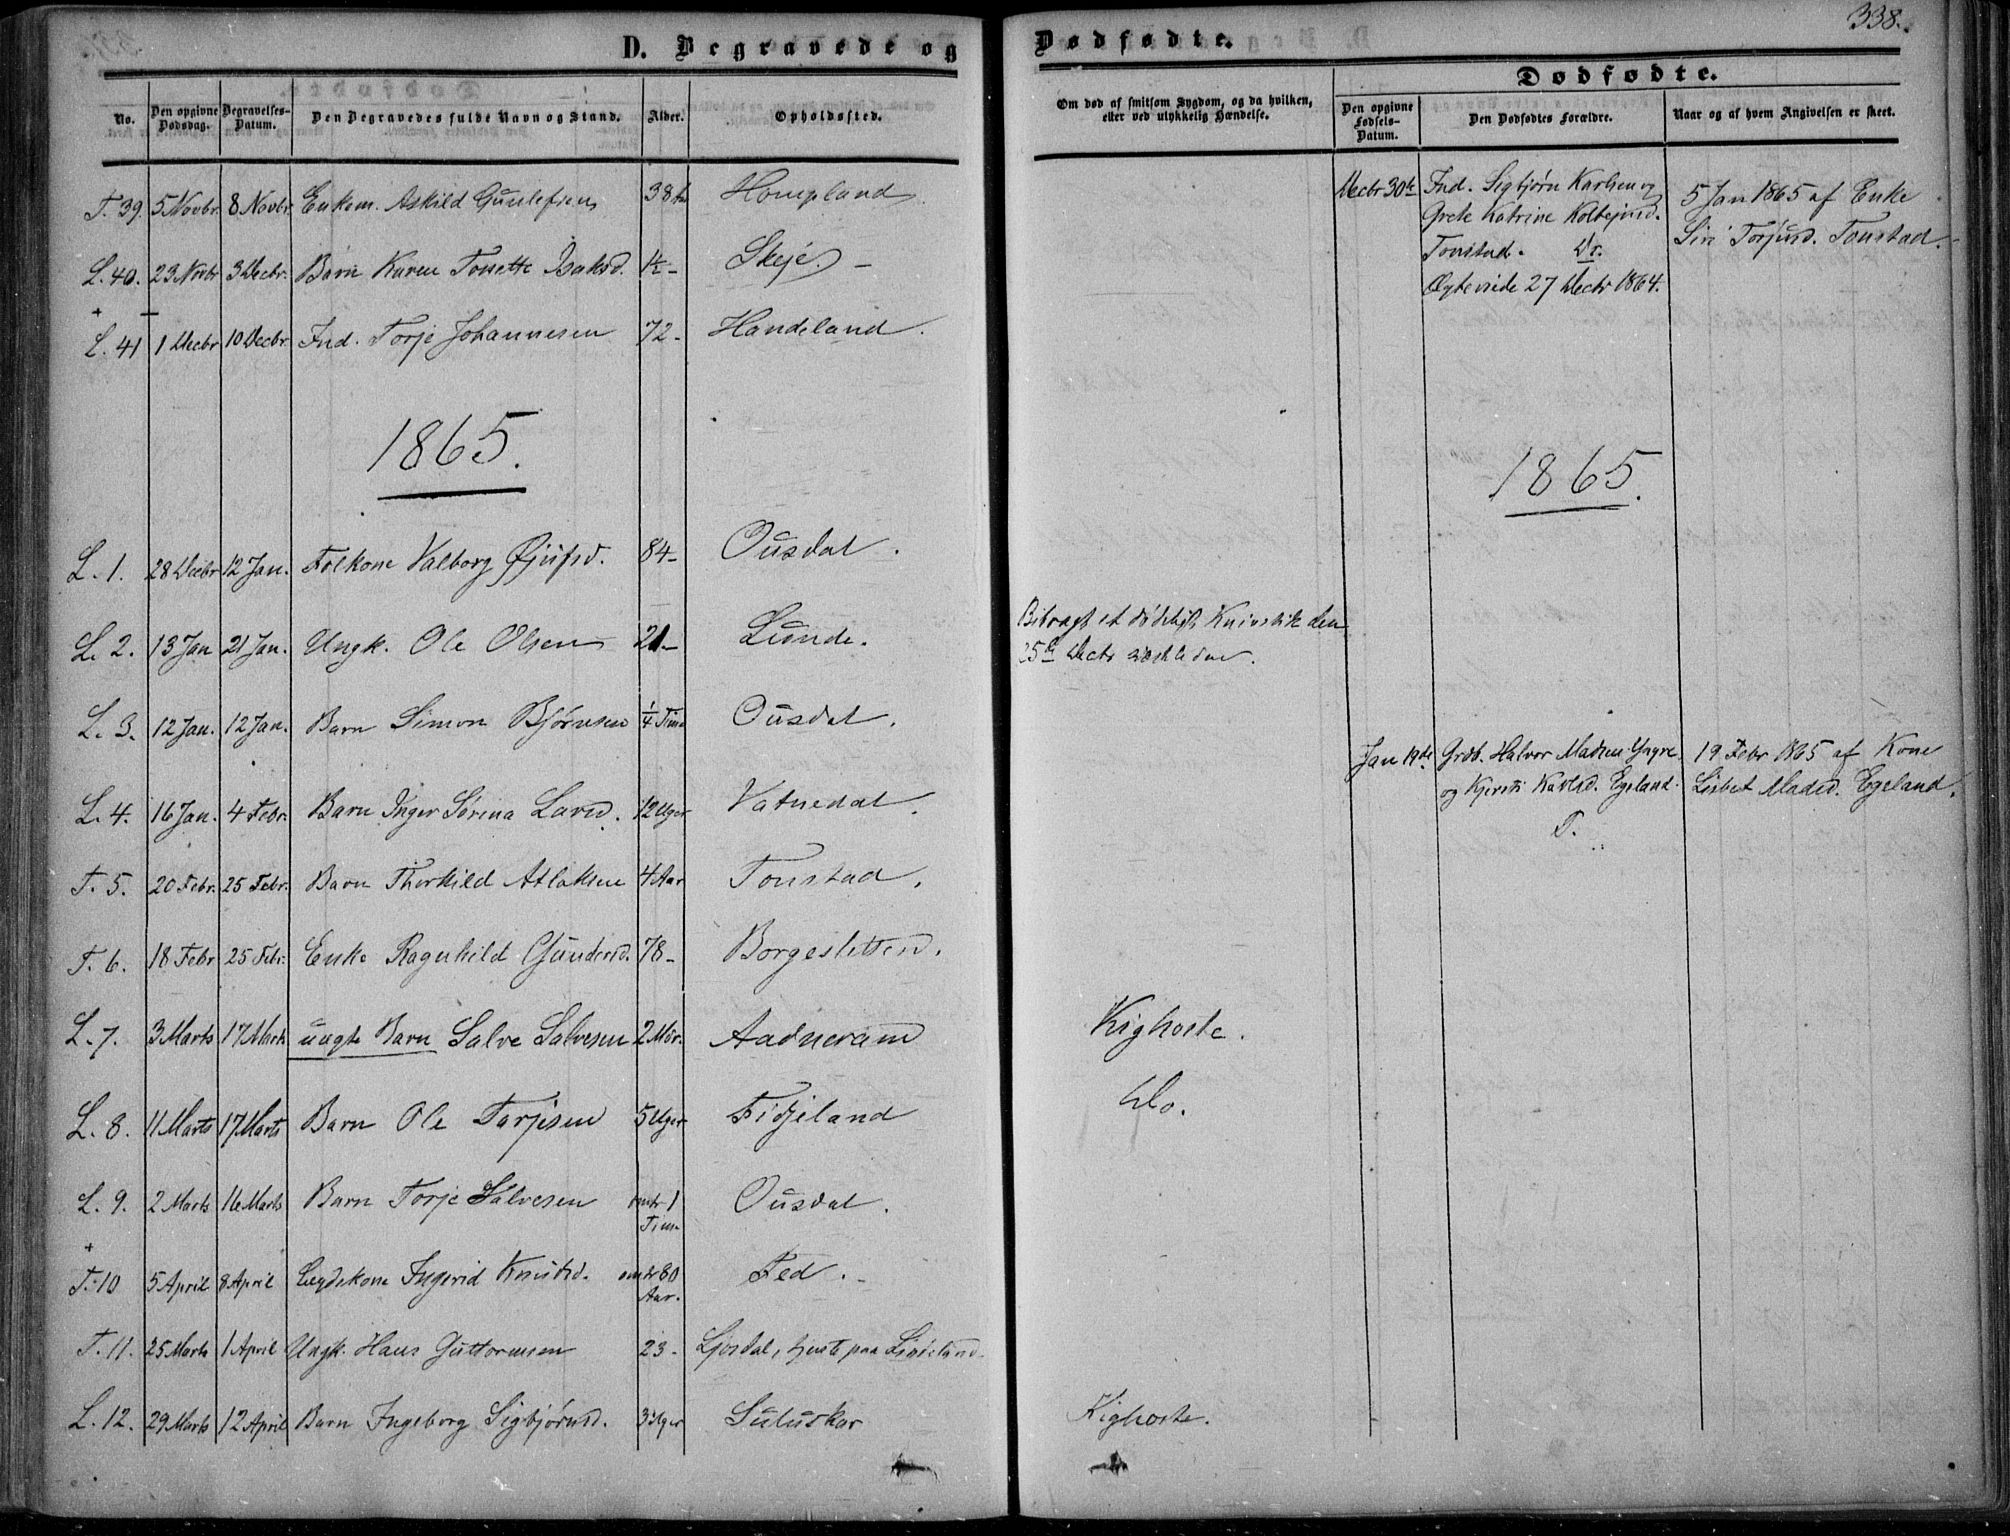 338.
D. Begravede og Dødfødte.
No. Den opgivne Dødsdag. Begravelses-Datum. Den Begravedes fulde Navn og Stand. Alder. Opholdssted.
Om død af smitsom Sygdom, og da hvilken, eller ved ulykkelig Hændelse.
Dødfødte.
Den opgivne Fødsels-Datum. Den Dødfødtes Forældre. Naar og af hvem Angivelsen er skeet.
T. 39. 5 Novbr. 8 Novbr. Enkem. Askild Gunlefsen 38 Hompland
L. 40. 23 Novbr 3 Decbr. Barn Karen Tonette Isaksd. ½ - Skeje. -
L. 41 1 Decbr 10 Decbr. Ind. Torje Johannesen 72 - Handeland.
Decbr 30te Ind. Sigbjørn Karlsen og
Grete Katrine Kolbejnsd.
Tonstad.
Ægteviede 27 Decbr 1864.
5 Jan 1865 af Enke
Siri Torjusd. Tonstad.
1865.
1865.
L. 1. 28 Decbr 12 Jan. Folkone Valborg 84 - Ousdal.
L. 2. 13 Jan 21 Jan. Ungk. Ole Olsen 21 - Lunde. Bibragt et dødeligt Knivstik den
25de Decbr
L. 3. 12 Jan. 12 Jan. Barn Simon Bjørnsen ¼ Time Ousdal.
Jan 19de Grdb. Halvor Madsen Yngre
og Kjersti Karlsd. Egeland.
T.
19 Febr 1865 af Kone
Lisbet Madsd. Egeland.
L. 4. 16 Jan. 4 Febr. Barn Inger Sørina Larsd. 12 Uger Vatnedal.
T. 5. 20 Febr. 25 Febr. Barn Thorkild Atlaksen 4 Aar Tonstad.
T. 6. 18 Febr 25 Febr. Enke Ragnhild Gundersd. 78 - Borgesletten.
L. 7. 3 Marts 17 Marts uægte Barn Salve Salvesen 2 Mdr. Aadneram Kighoste.
L. 8. 11 Marts 17 Marts Barn Ole Tarjesen 5 Uger Fidjeland Do.
L. 9. 2 Marts 16 Marts Barn Torje Salvesen omtr 1 Time Ousdal.
T. 10 5 April 8 April Lægdskone Ingerid Knudsd. omtr 80 Aar. Fed. -
T. 11. 25 Marts 1 April Ungk. Hans Guttormsen 23 - Ljosdal, tjente paa Lindeland.
L. 12. 29 Marts 12 April Barn Ingeborg Sigbjørnsd. 3 Uger Suluskar Kighoste.